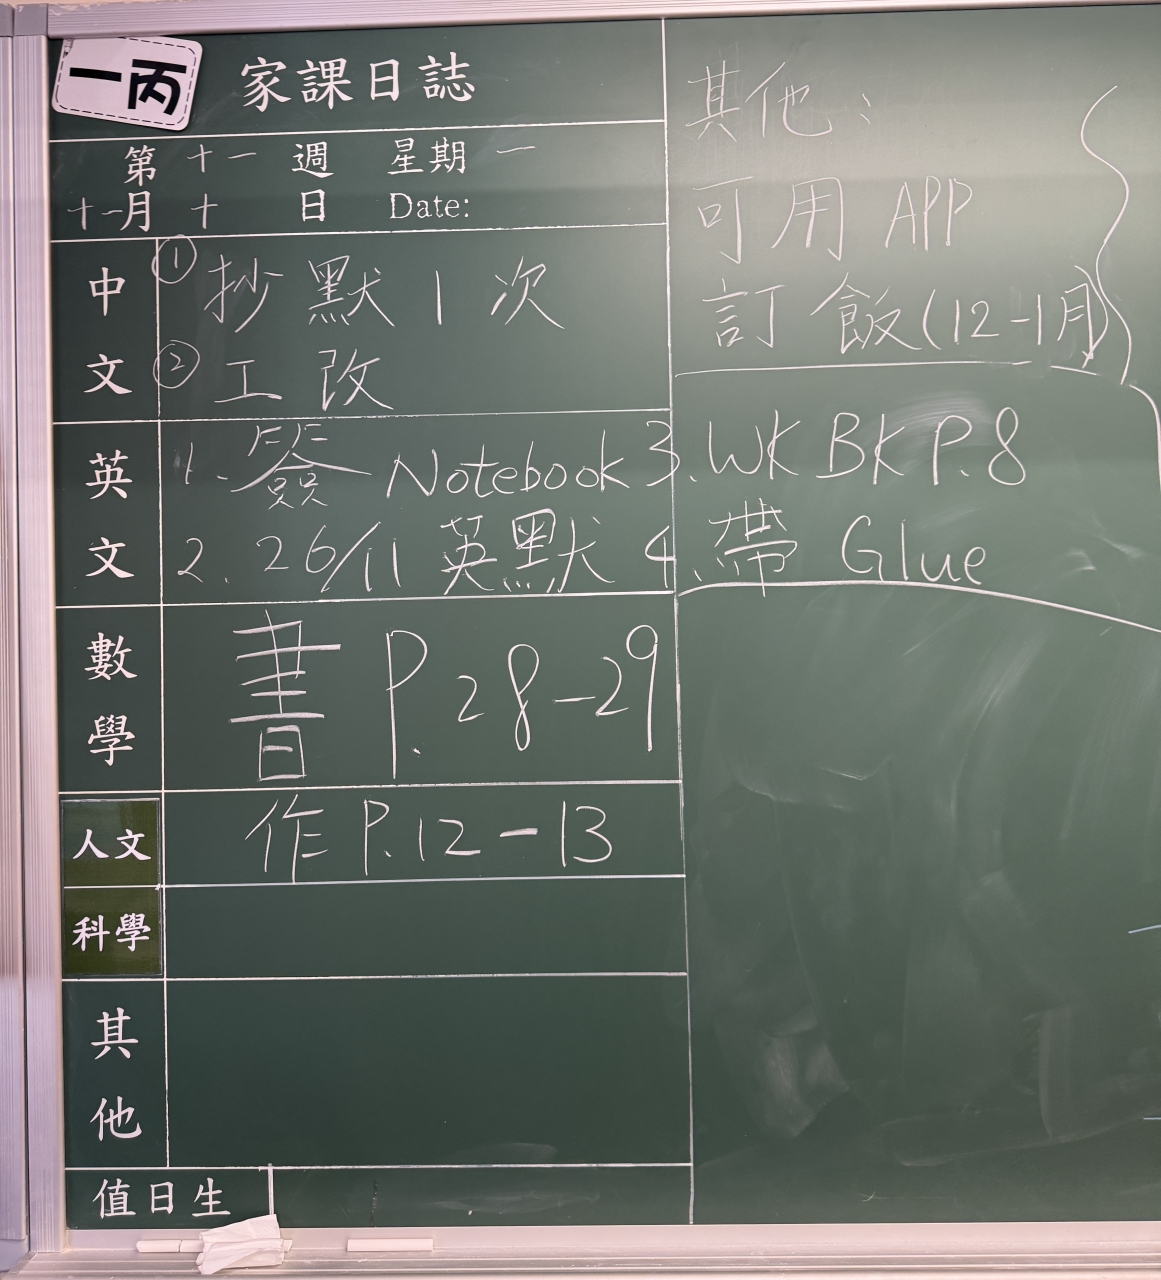 一丙
家課日誌
第十一週 星期一
十一月十日 Date:
中文
① 抄默1次
② 工改
英文
1. 簽 Notebook 3. WK BK P.8
2. 26/11 英默 4. 帶 Glue
數學
書 P. 28-29
人文
作 P.12-13
科學
其他
值日生
其他：
可用 APP
訂飯(12-1月)